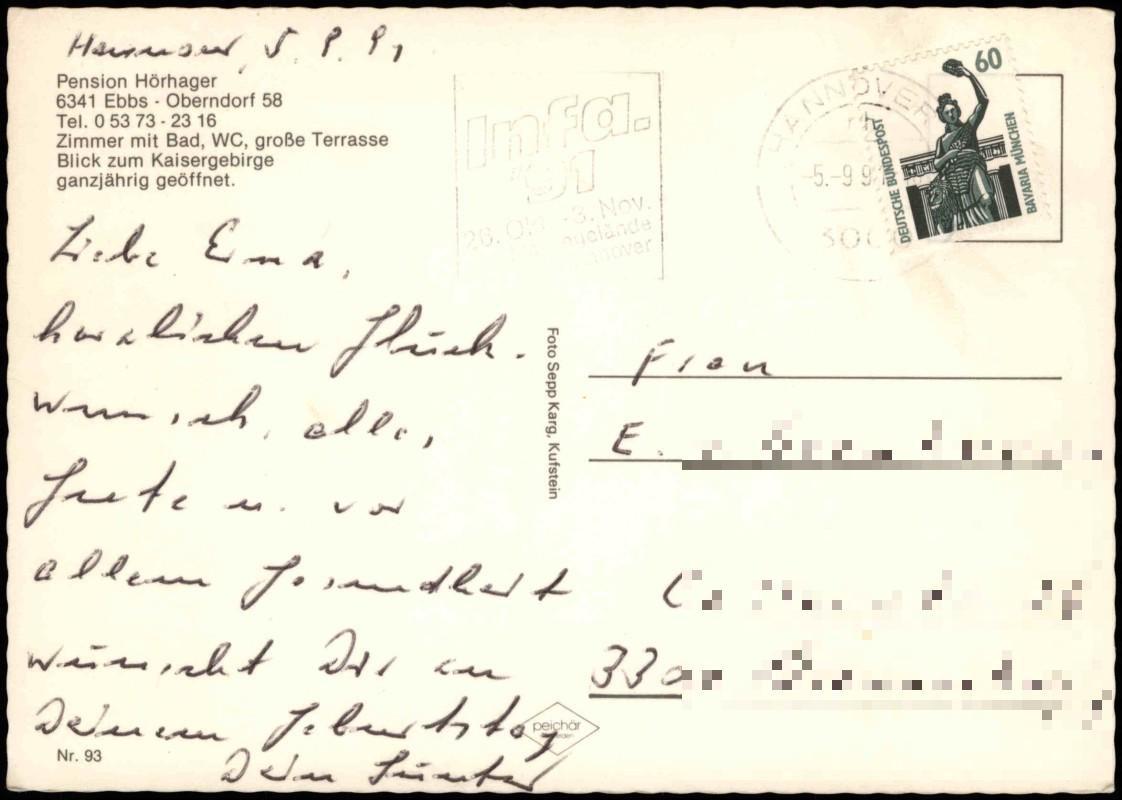 Hannover, 5.9.91
Pension Hörhager
6341 Ebbs - Oberndorf 58
Tel. 0 53 73 - 23 16
Zimmer mit Bad, WC, große Terrasse
Blick zum Kaisergebirge
ganzjährig geöffnet.
Liebe Erna,
herzlichen Glück-
wunsch, alles
Gute u. vor
allem Gesundheit
wünscht Dir zu
Deinem Geburtstag
Dein Günter
Nr. 93
Foto Sepp Karg, Kufstein
peichär
Infa.
'91
26. Okt.-3. Nov.
HANNOVER
-5.-9.9
300
60
DEUTSCHE BUNDESPOST
BAVARIA MÜNCHEN
Frau
E.
330